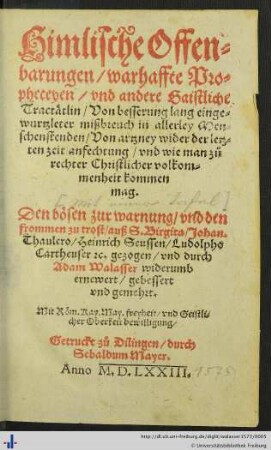 Himlische Offen-
barungen / warhaffte Pro-
pheceyen / vnd andere Gaistliche
Tractätlin / Von besserung lang einge-
wurtzleter mißbreuch in allerley Men-
schenstenden / Von artzney wider der letz-
ten zeit anfechtung / vnd wie man zů
rechter Christlicher volkom-
menheit kommen
mag.
Den bösen zur warnung / vnd den
frommen zu trost / auß S. Birgita / Johan.
Thaulero / Heinrich Seussen / Ludolpho
Cartheuser ꝛc. gezogen / vnd durch
Adam Walasser widerumb
ernewert / gebessert
vnd gemehrt.
Mit Röm. Kay. May. freyheit / vnd Geistli-
cher Oberkeit bewilligung /
Getruckt zů Dilingen / durch
Sebaldum Mayer.
Anno M. D. LXXIII. 1575
http://dl.ub.uni-freiburg.de/diglit/walasser1575/0005
© Universitätsbibliothek Freiburg